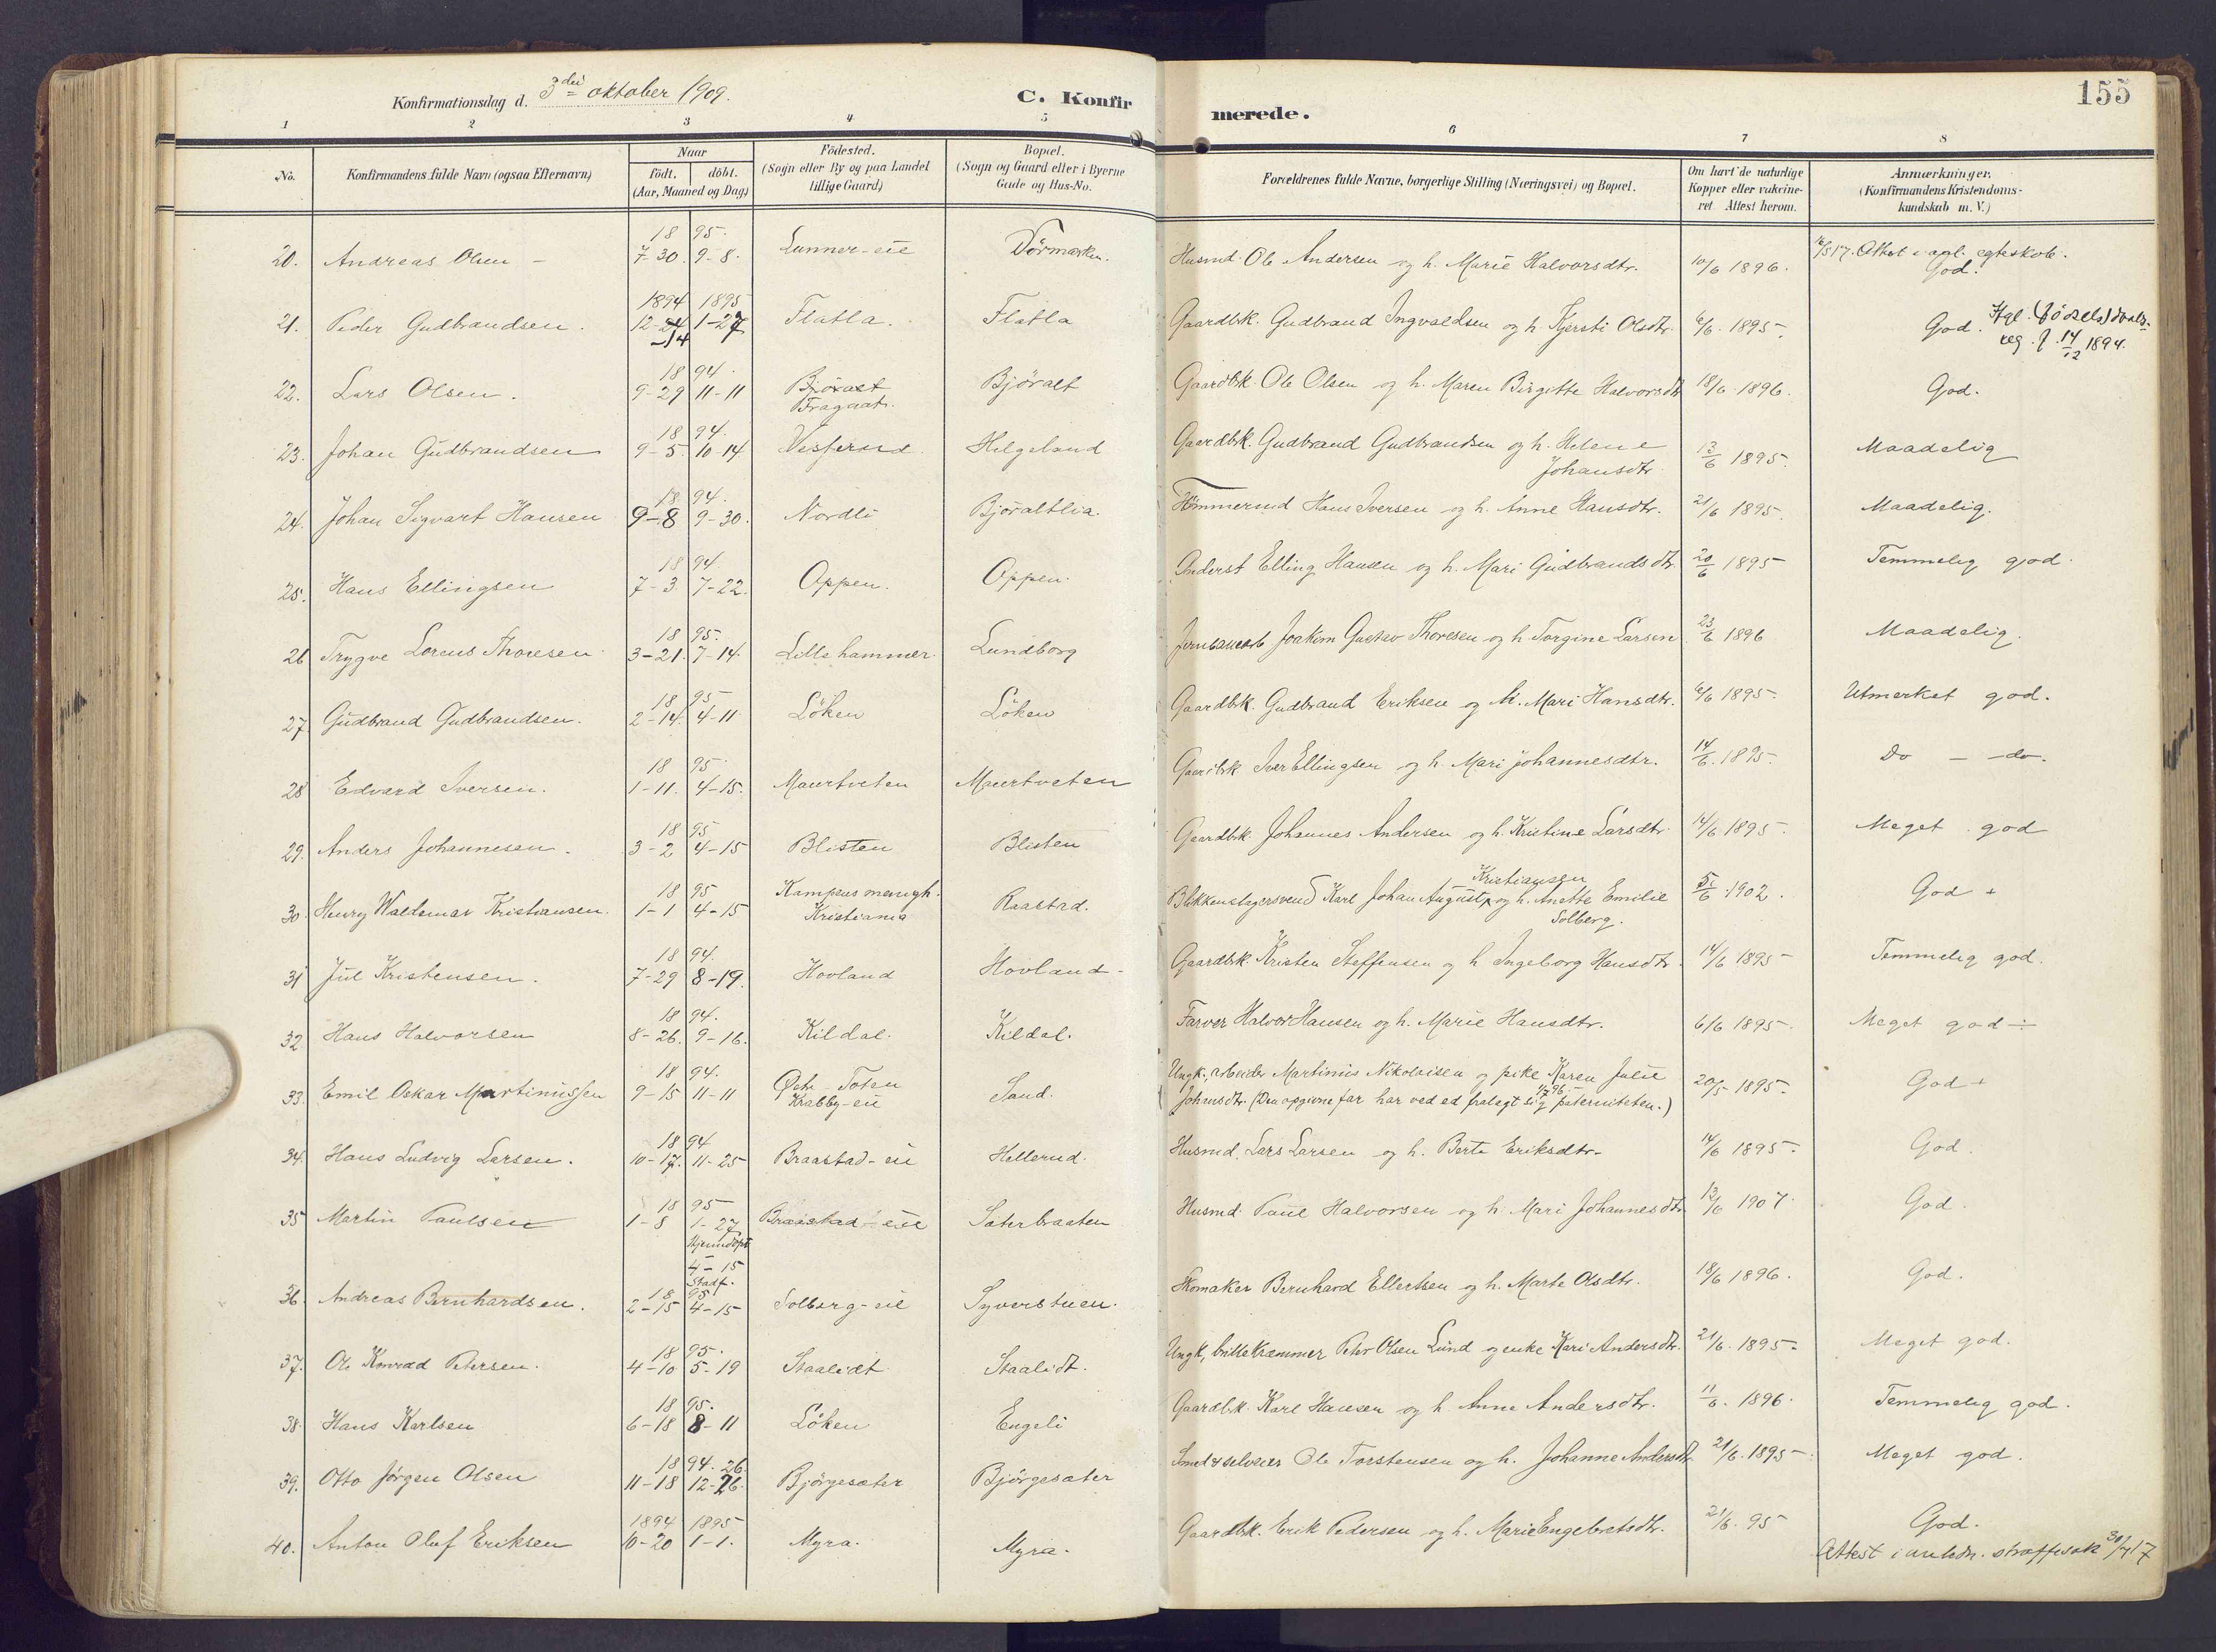 155
Konfirmationsdag d. 3die oktober 1909.
C. Konfirmerede.
1 2 3 4 5 6 7 8
No. Konfirmandens fulde Navn (ogsaa Efternavn) Naar født. døbt. (Aar, Maaned og Dag) Fødested. (Sogn eller By og paa Landet tillige Gaard) Bopæl. (Sogn og Gaard eller i Byerne Gade og Hus-No. Forældrenes fulde Navne, borgerlige Stilling (Næringsvei) og Bopæl. Om havt de naturlige Kopper eller vakcineret Attest herom. Anmærkninger. (Konfirmandens Kristendomskundskab m. V.)
20. Andreas Olsen - 1895. 7-30. 9-8. Lunner-eie Dörmarken. Husmd. Ole Andersen og h. Marie Halvorsdtr. 10/6 1896. Attest i anl. egteskab. God.
21. Peder Gudbrandsen. 1894 12-24 -14 1895 1-27 Flatla. Flatla Gaardbk. Gudbrand Ingvaldsen og h. Kjersti Olsdtr. 6/6. 1895. God. Ifgl. (födsels) daabsreg. f. 14/12 1894.
22. Lars Olsen. 1894. 9-29 11-11 Björalt Bragaat. Björalt Gaardbk. Ole Olsen og h. Maren Birgitte Halvorsdtr 18/6 1896. God.
23. Johan Gudbrandsen 1894. 9-5. 10-14 Vesterud Helgeland Gaardbk. Gudbrand Gudbrandsen og h. Helene Johansdtr. 13/6 1895. Maadelig
24. Johan Sigvart Hansen 1894. 9-8 9-30. Nordli Björaltlia. Tömmermd Hans Iversen og h. Anne Hansdtr. 21/6 1895. Maadelig.
25. Hans Ellingsen 1894. 7-3. 7-22. Oppen. Oppen. Anderst Elling Hansen og h. Mari Gudbrandsdtr. 20/6 1895 Temmelig god.
26 Trygve Lorens Thoresen 1895. 3-21. 7-14. Lillehammer. Lundborg Jernbanearb Joakim Gustav Thoresen og h. Torgine Larsen 23/6 1896 Maadelig.
27. Gudbrand Gudbrandsen. 1895 2-14. 4-11 Löken Löken Gaardbk. Gudbrand Eriksen og h. Mari Hansdtr. 6/6 1895. Utmerket god.
28 Edvard Iversen. 1895. 1-11. 4-15. Maurtveten Maurtveten Gaardbk Iver Ellingsen og h. Mari Johannesdtr. 14/6. 1895. Do - do.
29. Anders Johannesen. 1895 3-2 4-15 Blisten Blisten Gaardbk. Johannes Andersen og h. Kristine Larsdtr. 14/6 1895. Meget god
30. Henry Waldemar Kristiansen. 1895 1-1 4-15 Kampens menigh. Kristiania Raastad. Blikkenslagersvend Karl Johan August Kristiansen og h. Anette Emilie Solberg. 5/6 1902. God +
31 Jul Kristensen. 1894. 7-29 8-19. Hovland Hovland - Gaardbk. Kristen Steffensen og h. Ingeborg Hansdtr. 14/6 1895 Temmelig god.
32 Hans Halvorsen 1894. 8-26. 9-16. Kildal. Kildal. Farver Halvor Hansen og h. Marie Hansdtr. 6/6 1895. Meget god ÷
33. Emil Oskar Martinussen 1894. 9-15 11-11 Östr-Toten Krabby-eie Sand. Ungk., arbeider Martinus Nikolaisen og pike Karen Julie Johansdtr. (Den opgivne far har ved ed fralagt sig paterniteten.) 20/5 1895. God +
34. Hans Ludvig Larsen. 1894 10-17. 11-25 Braastad-eie Hellerud. Husmd. Lars Larsen og h. Berte Eriksdtr. 14/6 1895. God.
35 Martin Paulsen 1895 1-8 1-27 Hjemdöpt 4-15 Stadf. Braastad-eie Säterbraaten Husmd. Paul Halvorsen og h. Mari Johannesdtr. 12/6 1907. God.
36. Andreas Bernhardsen. 1895 2-15 4-15 Solberg-eie Syverstuen. Skomaker Bernhard Ellertsen og h. Marte Olsdtr. 18/6 1896. God.
37. Ole Konrad Petersen. 1895. 4-10 5-19 Staalidt Staalidt. Ungk, brillekræmmer Peter Olsen Lund og enke Kari Andersdtr. 21/6. 1895. Meget god.
38. Hans Karlsen 1895. 6-18 8-11 Löken Engeli Gaardbk. Karl Hansen og h. Anne Andersdtr. 11/6. 1896. Temmelig god.
39. Otto Jörgen Olsen 1894. 26. 11-18 12-26. Björgesæter Björgesæter Smed & selveier Ole Torstensen og h. Johanne Andersdtr 21/6. 1895 Meget god.
40. Anton Oluf Eriksen 1894 10-20 1895 1-1. Myra. Myra. Gaardbk. Erik Pedersen og h. Marie Engebretsdtr. 21/6. 95 God.
Attest i anledn. straffesak 30/4 17